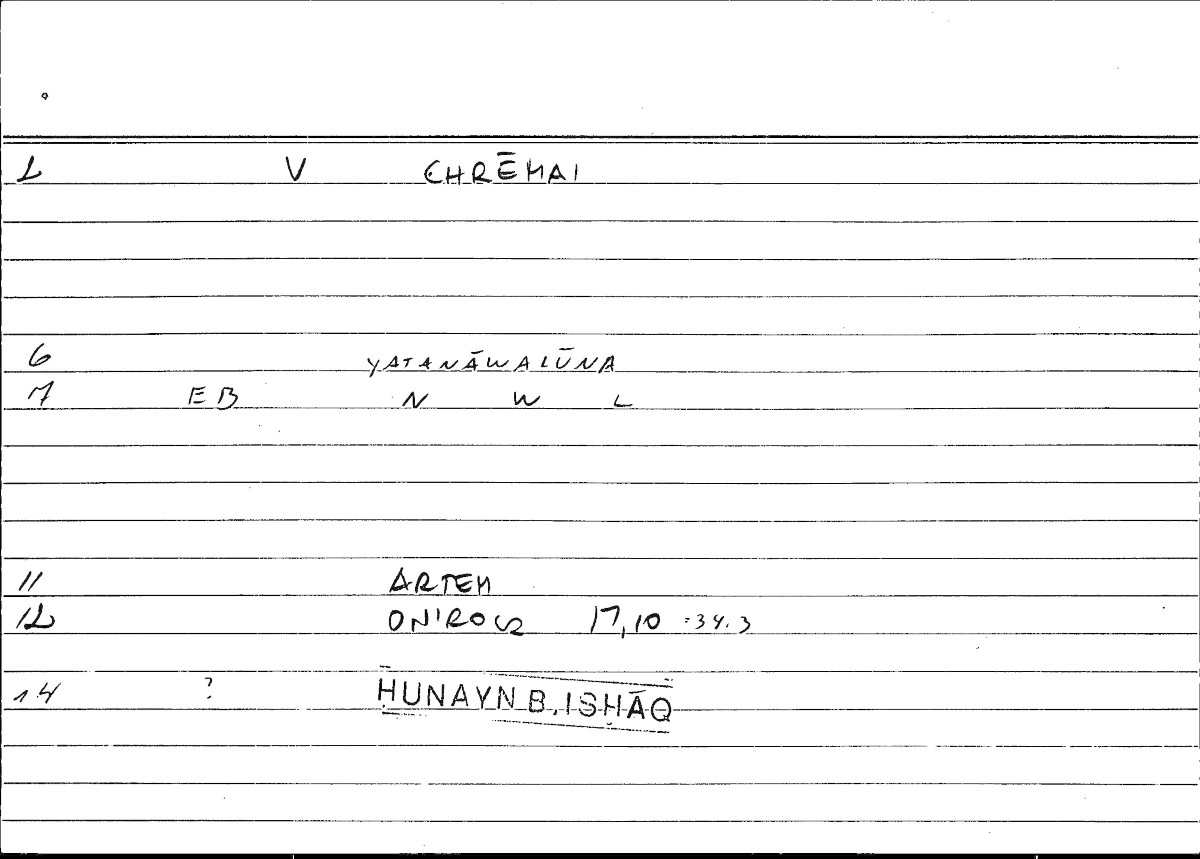 2 V CHRĒMAI
6 YATANĀWALŪNA
7 EB N W L
11 ARTEM
12 ONIROCR 17,10 =34.3
14 ? ḤUNAYN B. ISḤĀQ